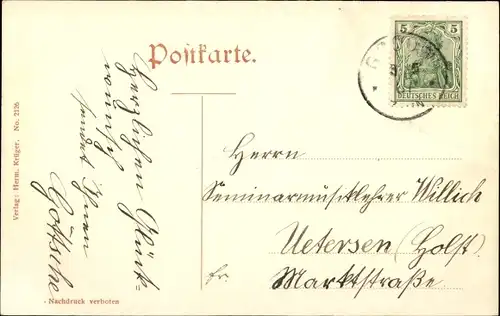 Postkarte.
5 5
DEUTSCHES REICH
Herrn
Seminarmusiklehrer Willich
Uetersen (Holst.)
fr. Marktstraße
Herzlichen Glück-
wunsch
sendet Ihnen
Göttsche
Verlag: Herm. Krüger. No. 2126
Nachdruck verboten